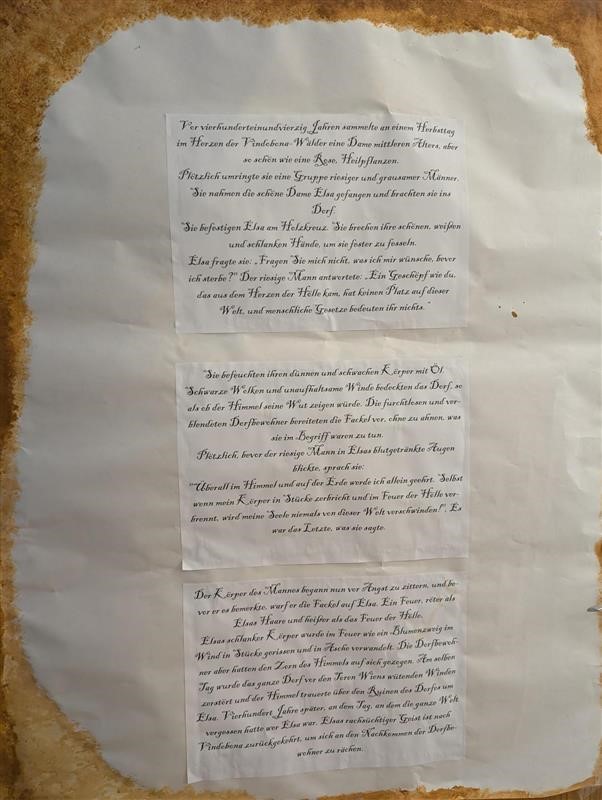 Vor vierhunderteinundvierzig Jahren sammelte an einem Herbsttag
im Herzen der Vindobona-Wälder eine Dame mittleren Alters, aber
so schön wie eine Rose, Heilpflanzen.
Plötzlich umringte sie eine Gruppe riesiger und grausamer Männer.
Sie nahmen die schöne Dame Elsa gefangen und brachten sie ins
Dorf.
Sie befestigen Elsa am Holzkreuz. Sie brechen ihre schönen, weißen
und schlanken Hände, um sie fester zu fesseln.
Elsa fragte sie: „Fragen Sie mich nicht, was ich mir wünsche, bevor
ich sterbe?" Der riesige Mann antwortete: „Ein Geschöpf wie du,
das aus dem Herzen der Hölle kam, hat keinen Platz auf dieser
Welt, und menschliche Gesetze bedeuten ihr nichts."
Sie befeuchten ihren dünnen und schwachen Körper mit Öl.
Schwarze Wolken und unaufhaltsame Winde bedeckten das Dorf, so
als ob der Himmel seine Wut zeigen würde. Die furchtlosen und ver-
blendeten Dorfbewohner bereiteten die Fackel vor, ohne zu ahnen, was
sie im Begriff waren zu tun.
Plötzlich, bevor der riesige Mann in Elsas blutgetränkte Augen
blickte, sprach sie:
"Überall im Himmel und auf der Erde werde ich allein geehrt. Selbst
wenn mein Körper in Stücke zerbricht und im Feuer der Hölle ver-
brennt, wird meine Seele niemals von dieser Welt verschwinden!". Es
war das Letzte, was sie sagte.
Der Körper des Mannes begann nun vor Angst zu zittern, und be-
vor er es bemerkte, warf er die Fackel auf Elsa. Ein Feuer, röter als
Elsas Haare und heißer als das Feuer der Hölle.
Elsas schlanker Körper wurde im Feuer wie ein Blumenzweig im
Wind in Stücke gerissen und in Asche verwandelt. Die Dorfbewoh-
ner aber hatten den Zorn des Himmels auf sich gezogen. Am selben
Tag wurde das ganze Dorf vor den Toren Wiens wütenden Winden
zerstört und der Himmel trauerte über den Ruinen des Dorfes um
Elsa. Vierhundert Jahre später, an dem Tag, an dem die ganze Welt
vergessen hatte wer Elsa war. Elsas rachsüchtiger Geist ist nach
Vindobona zurückgekehrt, um sich an den Nachkommen der Dorfbe-
wohner zu rächen.